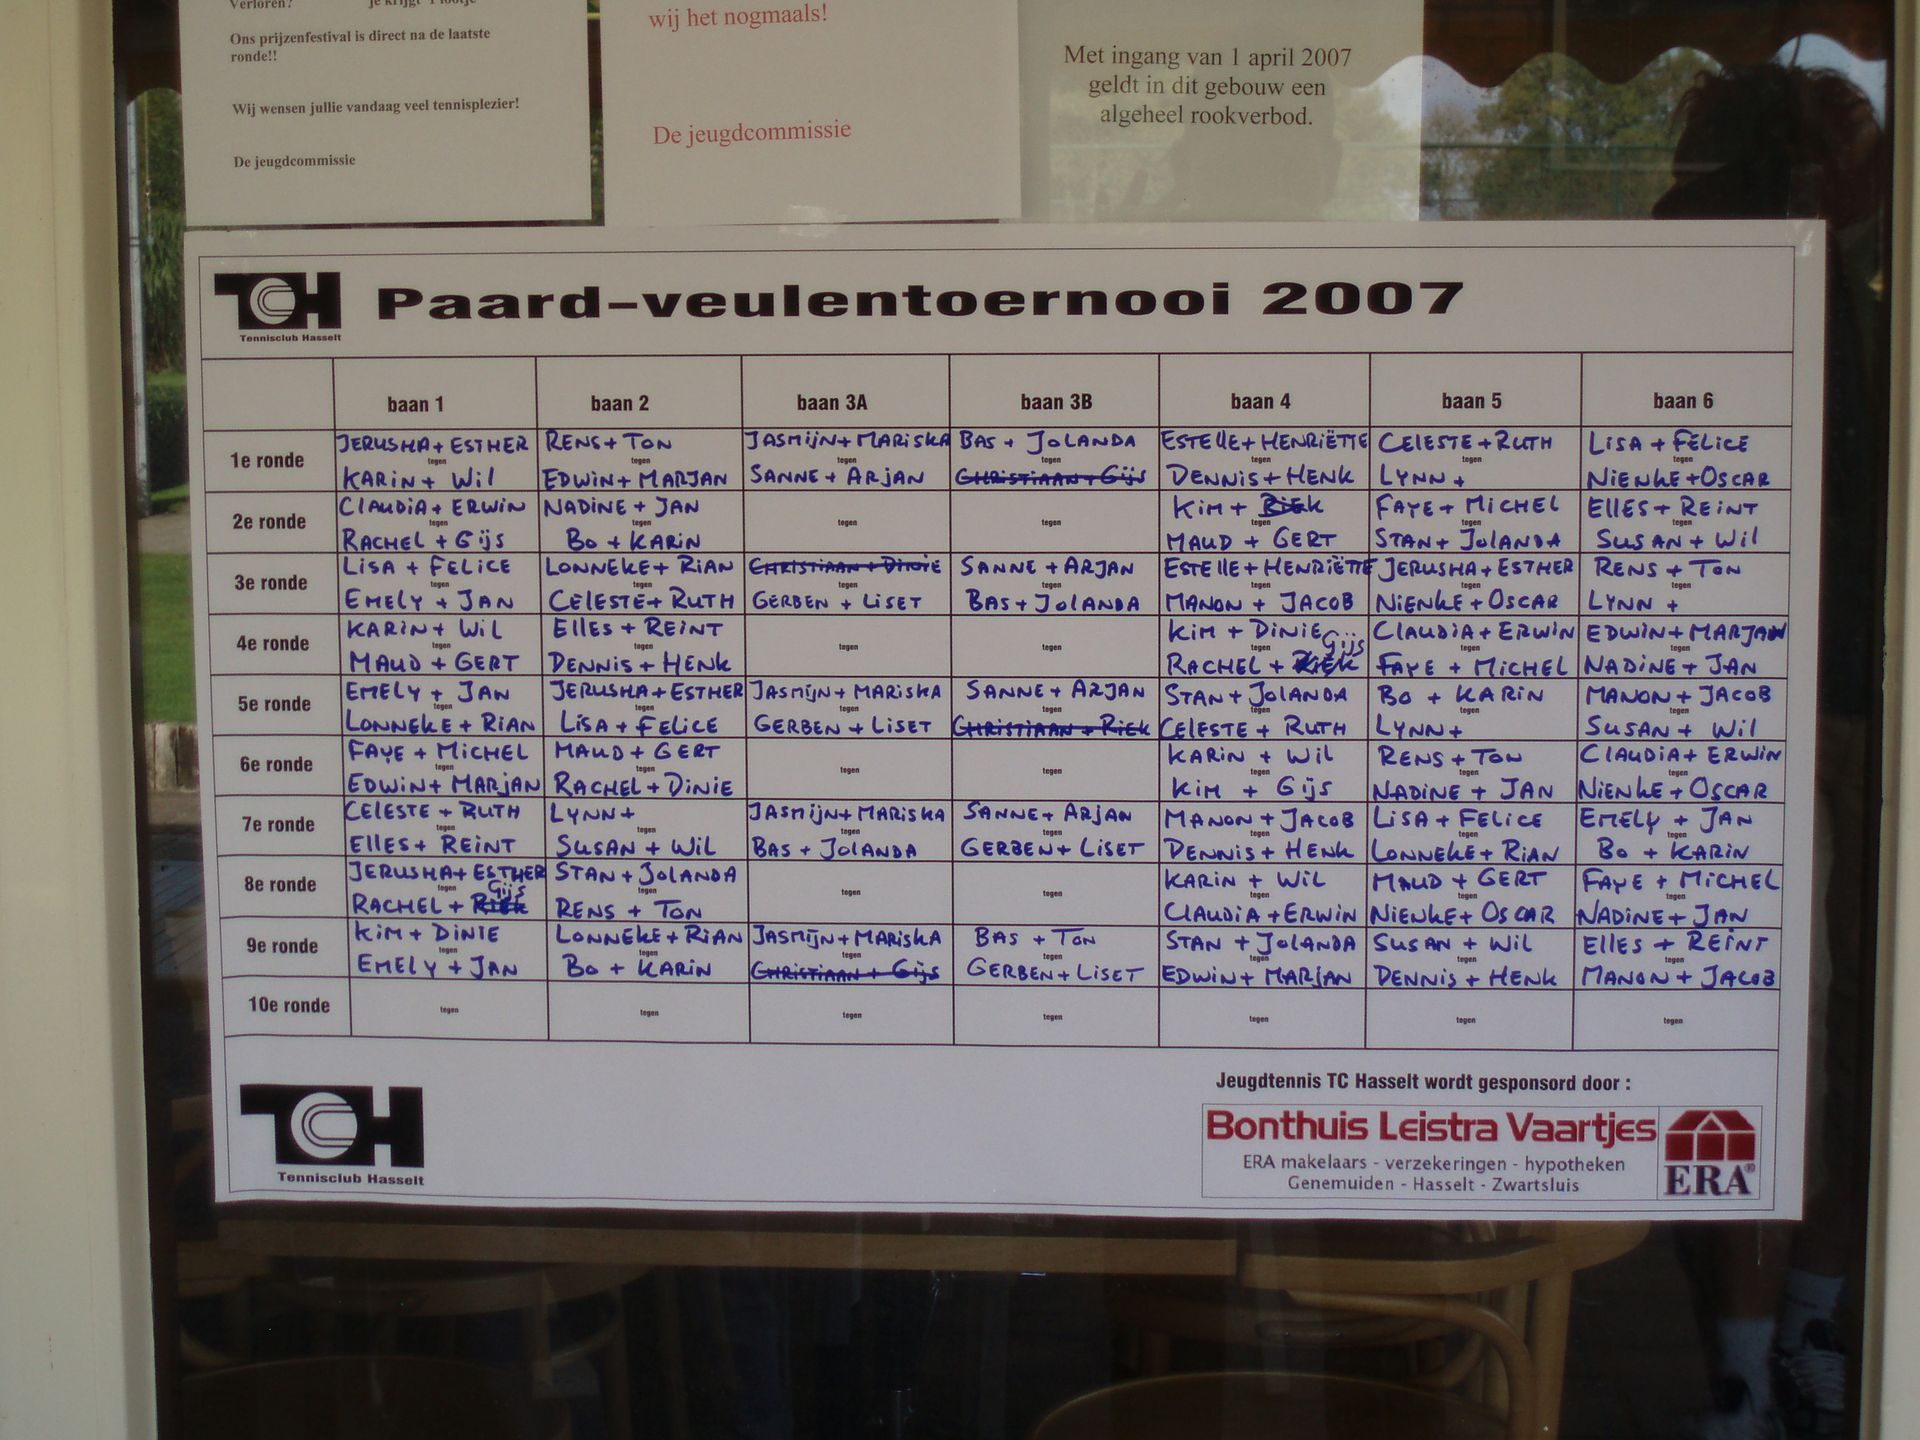 Verloren? je krijgt 1 lootje
Ons prijzenfestival is direct na de laatste
ronde!!
Wij wensen jullie vandaag veel tennisplezier!
De jeugdcommissie
wij het nogmaals!
De jeugdcommissie
Met ingang van 1 april 2007
geldt in dit gebouw een
algeheel rookverbod.
TCH
Tennisclub Hasselt
Paard-veulentoernooi 2007
baan 1 baan 2 baan 3A baan 3B baan 4 baan 5 baan 6
JERUSHA + ESTHER RENS + TON JASMIJN + MARISKA BAS + JOLANDA ESTELLE + HENRIËTTE CELESTE + RUTH LISA + FELICE
1e ronde tegen tegen tegen tegen tegen tegen tegen
KARIN + WIL EDWIN + MARJAN SANNE + ARJAN CHRISTIAAN + GIJS DENNIS + HENK LYNN + NIENKE + OSCAR
CLAUDIA + ERWIN NADINE + JAN KIM + RIEK FAYE + MICHEL ELLES + REINT
2e ronde tegen tegen tegen tegen tegen tegen tegen
RACHEL + GIJS BO + KARIN MAUD + GERT STAN + JOLANDA SUSAN + WIL
LISA + FELICE LONNEKE + RIAN CHRISTIAAN + DINIE SANNE + ARJAN ESTELLE + HENRIËTTE JERUSHA + ESTHER RENS + TON
3e ronde tegen tegen tegen tegen tegen tegen tegen
EMELY + JAN CELESTE + RUTH GERBEN + LISET BAS + JOLANDA MANON + JACOB NIENKE + OSCAR LYNN +
KARIN + WIL ELLES + REINT KIM + DINIE CLAUDIA + ERWIN EDWIN + MARJAN
4e ronde tegen tegen tegen tegen tegen Gijs tegen tegen
MAUD + GERT DENNIS + HENK RACHEL + RIEK FAYE + MICHEL NADINE + JAN
EMELY + JAN JERUSHA + ESTHER JASMIJN + MARISKA SANNE + ARJAN STAN + JOLANDA BO + KARIN MANON + JACOB
5e ronde tegen tegen tegen tegen tegen tegen tegen
LONNEKE + RIAN LISA + FELICE GERBEN + LISET CHRISTIAAN + RIEK CELESTE + RUTH LYNN + SUSAN + WIL
FAYE + MICHEL MAUD + GERT KARIN + WIL RENS + TON CLAUDIA + ERWIN
6e ronde tegen tegen tegen tegen tegen tegen tegen
EDWIN + MARJAN RACHEL + DINIE KIM + GIJS NADINE + JAN NIENKE + OSCAR
CELESTE + RUTH LYNN + JASMIJN + MARISKA SANNE + ARJAN MANON + JACOB LISA + FELICE EMELY + JAN
7e ronde tegen tegen tegen tegen tegen tegen tegen
ELLES + REINT SUSAN + WIL BAS + JOLANDA GERBEN + LISET DENNIS + HENK LONNEKE + RIAN BO + KARIN
JERUSHA + ESTHER STAN + JOLANDA KARIN + WIL MAUD + GERT FAYE + MICHEL
8e ronde tegen Gijs tegen tegen tegen tegen tegen tegen
RACHEL + RIEK RENS + TON CLAUDIA + ERWIN NIENKE + OSCAR NADINE + JAN
KIM + DINIE LONNEKE + RIAN JASMIJN + MARISKA BAS + TON STAN + JOLANDA SUSAN + WIL ELLES + REINT
9e ronde tegen tegen tegen tegen tegen tegen tegen
EMELY + JAN BO + KARIN CHRISTIAAN + GIJS GERBEN + LISET EDWIN + MARJAN DENNIS + HENK MANON + JACOB
10e ronde tegen tegen tegen tegen tegen tegen tegen
Jeugdtennis TC Hasselt wordt gesponsord door :
TCH
Tennisclub Hasselt
Bonthuis Leistra Vaartjes
ERA makelaars - verzekeringen - hypotheken
Genemuiden - Hasselt - Zwartsluis
ERA®